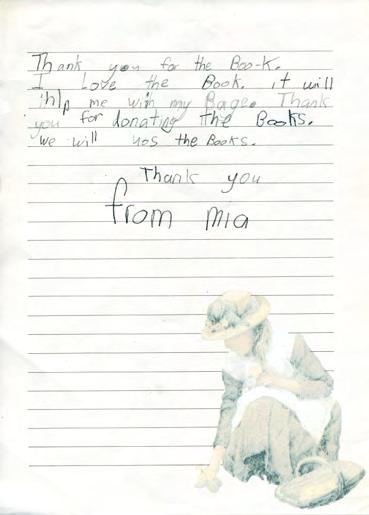 Thank you for the Boo-k.
I Love the Book. it will
ihlp me with my Bage. Thank
you for donating the Books.
we will uos the Books.
Thank you
from mia